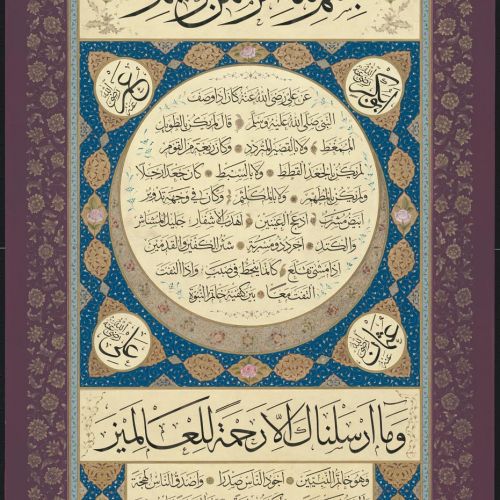 بسم الله الرحمن الرحيم
ابو بكر رضى الله عنه
عمر رضى الله عنه
عن على رضى الله عنه كان اذا وصف
النبى صلى الله عليه وسلم قال لم يكن بالطويل
الممغط ولا بالقصير المتردد وكان ربعة من القوم
لم يكن بالجعد القطط ولا بالسبط كان جعدا رجلا
ولم يكن بالمطهم ولا بالمكلثم وكان فى وجهه تدوير
ابيض مشرب ادعج العينين اهدب الاشفار جليل المشاش
والكتد اجرد ذو مسربة شثن الكفين والقدمين
اذا مشى تقلع كانما ينحط فى صبب واذا التفت
التفت معا بين كتفيه خاتم النبوة
عثمان رضى الله عنه
على رضى الله عنه
وما ارسلناك الا رحمة للعالمين
وهو خاتم النبيين اجود الناس صدرا واصدق الناس لهجة